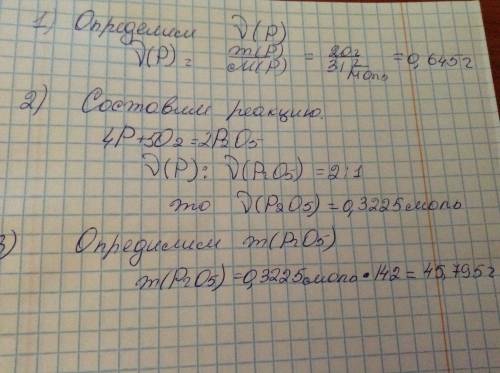 1) Определим ν(P)
ν(P) = m(P)/M(P) = 20г/31г/моль = 0,645г
2) Составим реакцию.
4P+5O2=2P2O5
ν(P): ν(P2O5) = 2:1
то ν(P2O5) = 0,3225моль
3) Опредилим m(P2O5)
m(P2O5) = 0,3225моль·142 = 45,795г